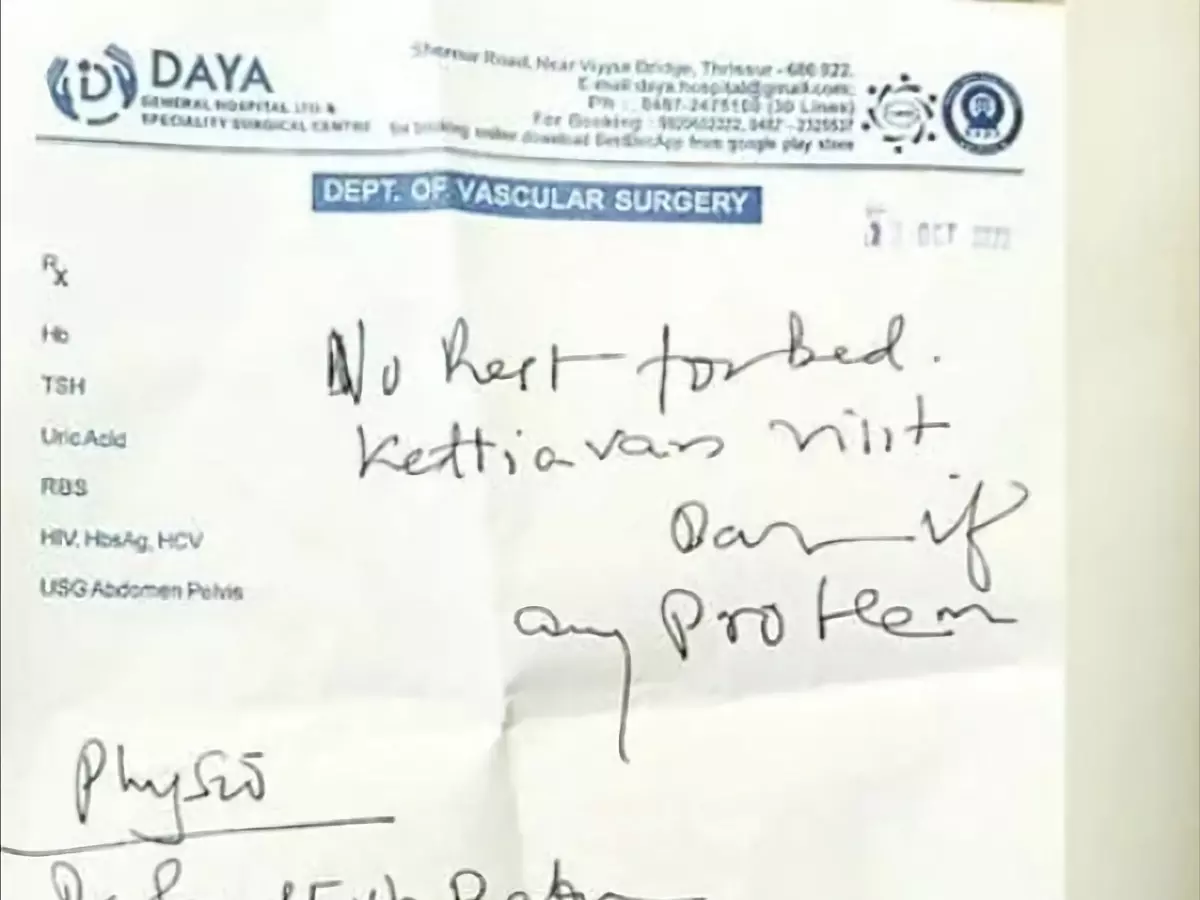 DAYA
GENERAL HOSPITAL LTD &
SPECIALITY SURGICAL CENTRE
Shornur Road, Near Viyyur Bridge, Thrissur - 680 022.
E-mail:daya.hospital@gmail.com;
Ph : 0487-2475100 (30 Lines)
For Booking :
for booking online download from google play store
DEPT. OF VASCULAR SURGERY
OCT
Rx
Hb
TSH
Uric Acid
RBS
HIV, HbsAg, HCV
USG Abdomen Pelvis
No Rest for bed.
Kettiavan visit
Bar if
any Problem
Physio